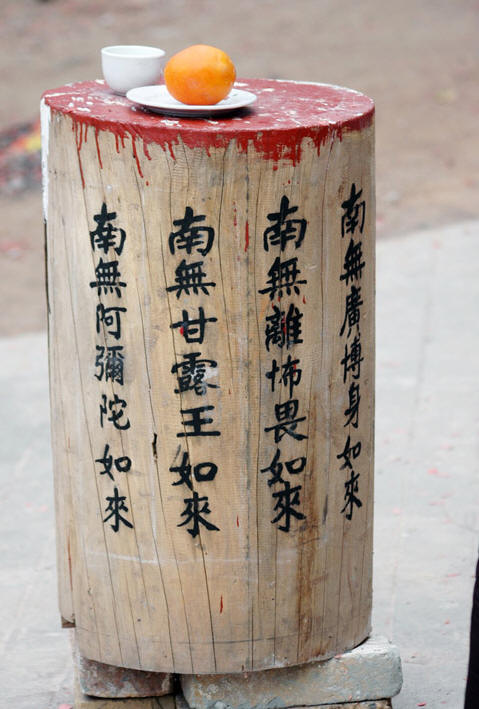 南無廣博身如來
南無離怖畏如來
南無甘露王如來
南無阿彌陀如來